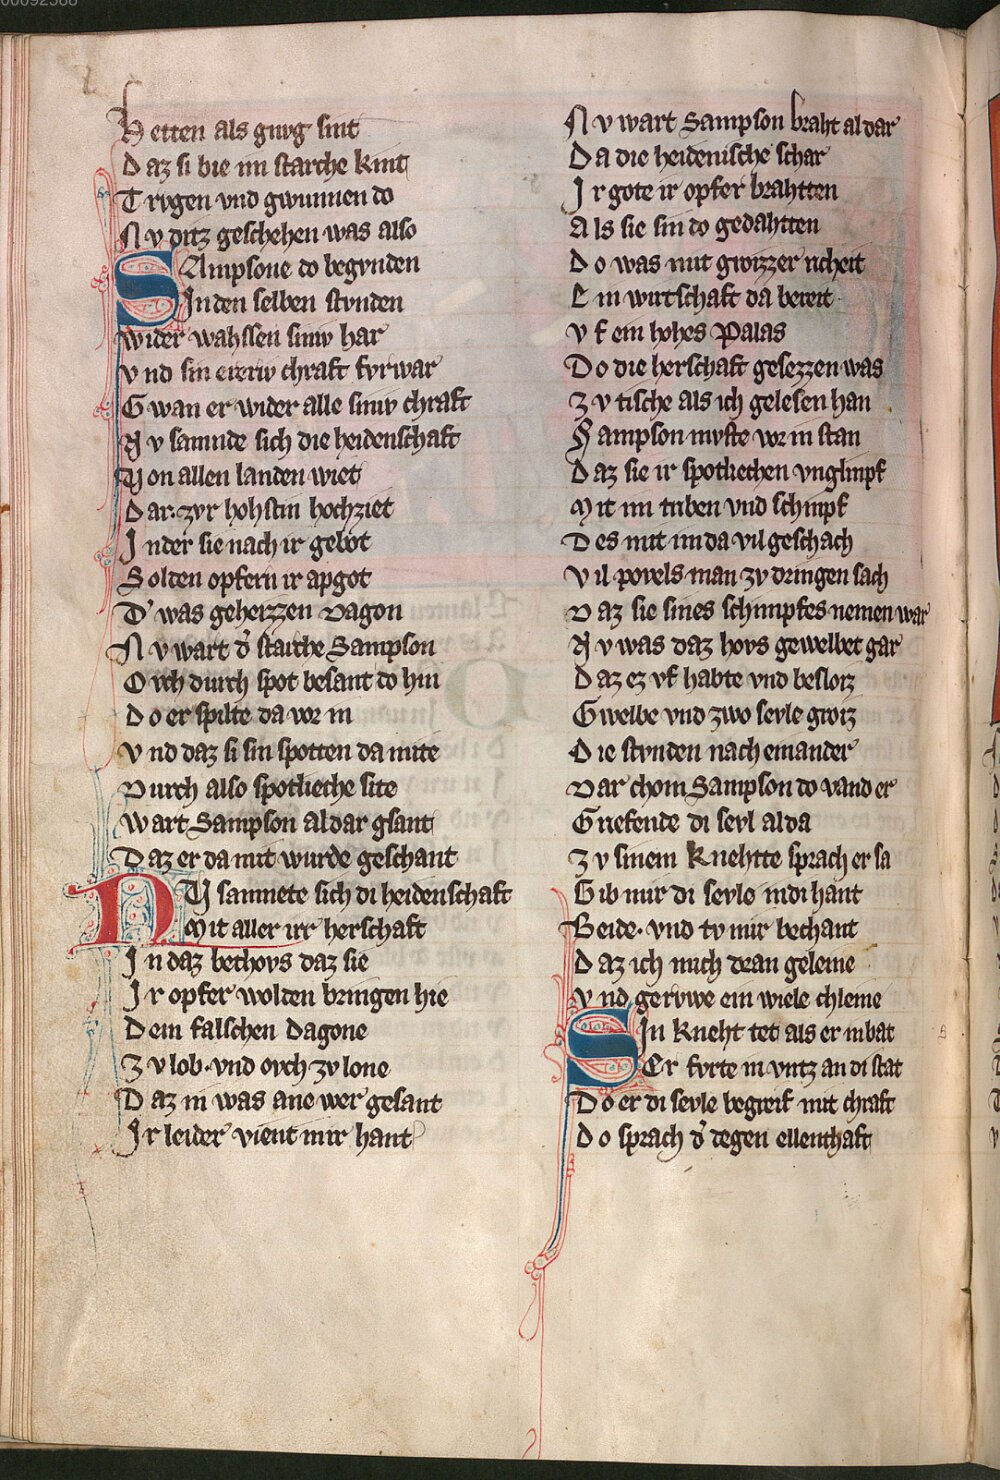 00092588
Hetten als gnvg sint
Daz si bie im starche kint
Trvgen vnd gwunnen do
Nv ditz geschehen was also
SAmpsone do begvnden
Inden selben stvnden
wider wahssen sinw har
vnd sin ereriv chraft fvrwar
Gwan er wider alle sinw chraft
Nv samnde sich die heidenschaft
Von allen landen wiet
Dar. zvr hohstin hochziet
Inder sie nach ir gebot
Solden opfern ir apgot
D' was geheizzen Dagon
Nv wart d' starche Sampson
Ovch durch spot besant do hin
Do er spilte da vor in
vnd daz si sin spotten da mite
Durch also spotlieche site
wart Sampson aldar gsant
Daz er da mit wurde geschant
NV samnete sich di heidenschaft
Mit aller irr herschaft
In daz bethovs daz sie
Ir opfer wolden bringen hie
Dem falschen Dagone
Zv lob. vnd ovch zv lone
Daz in was ane wer gesant
Ir leider vient inir hant
Nv wart Sampson braht al dar
Da die heidenische schar
Ir gote ir opfer brahtten
Als sie sin do gedahtten
Do was mit grozzer richeit
Ein wirtschaft da bereit
vf ein hohes Palas
Do die herschaft gesezzen was
Zv tische als ich gelesen han
Sampson mvste vor in stan
Daz sie ir spotliechen vnglimpf
Mit im triben vnd schimpf
Des mit im da vil geschach
Vil povels man zv dringen sach
Daz sie sines schimpfes nemen war
Nv was daz hovs gewelbet gar
Daz ez vf habte vnd besloz
Gwelbe vnd zwo sevle groz
Die stvnden nach einander
Dar chom Sampson do vand er
Griefende di sevl alda
Zv sinem knehtte sprach er sa
Gib mir di sevle indi hant
Beide. vnd tv mir bechant
Daz ich mich dran geleine
vnd gervwe ein wiele chleine
SIn kneht tet als er in bat
Er fvrte in vntz an di stat
Do er di sevle begreif mit chraft
Do sprach d' degen ellenthaft